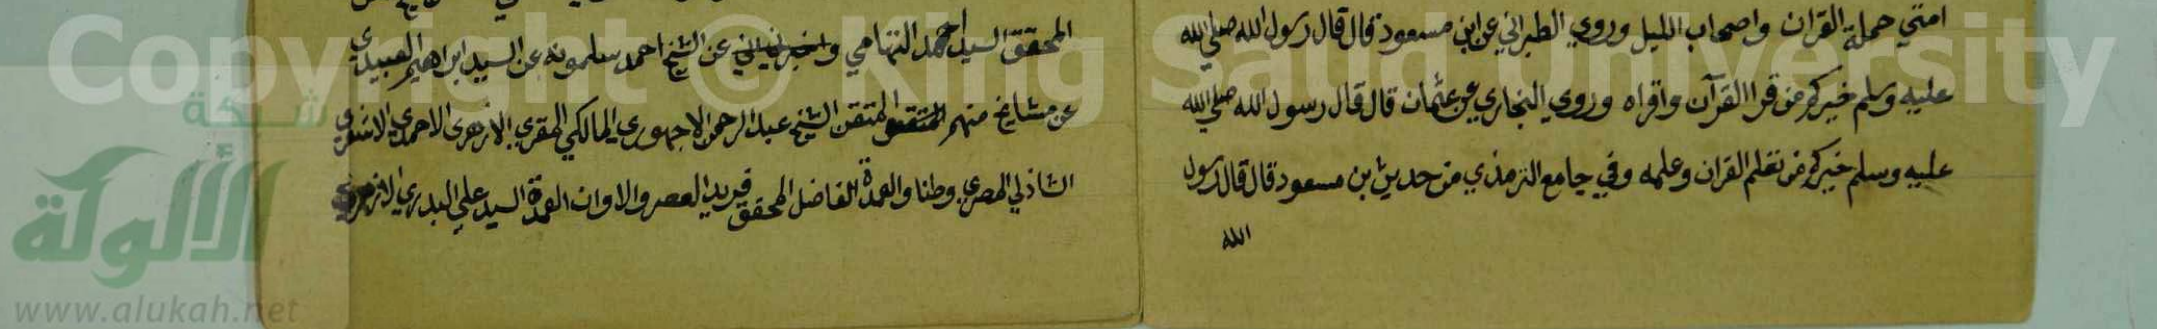 امتي حملة القران واصحاب الليل وروي الطبراني عن ابن مسعود قال قال رسول الله صلي الله
عليه وسلم خيركم من قرا القرآن واقراه وروي البخاري عن عثمان قال قال رسول الله صلي الله
عليه وسلم خيركم من تعلم القران وعلمه وفي جامع الترمذي من حديث بن مسعود قال قال رسول
الله
المحقق السيد احمد التهامي عن الشيخ احمد سلمونه عن السيد ابراهيم العبيدي
عن مشايخ منهم المتقن الشيخ عبد الرحمن الاجهوري المالكي المقري الازهري الاحمدي الاشعري
الشاذلي المصري وطنا والعمدة الفاضل المحقق فريد العصر والاوان العمدة السيد علي البدري الازهري
Copyright © King Saud University
شبكة
الألوكة
www.alukah.net